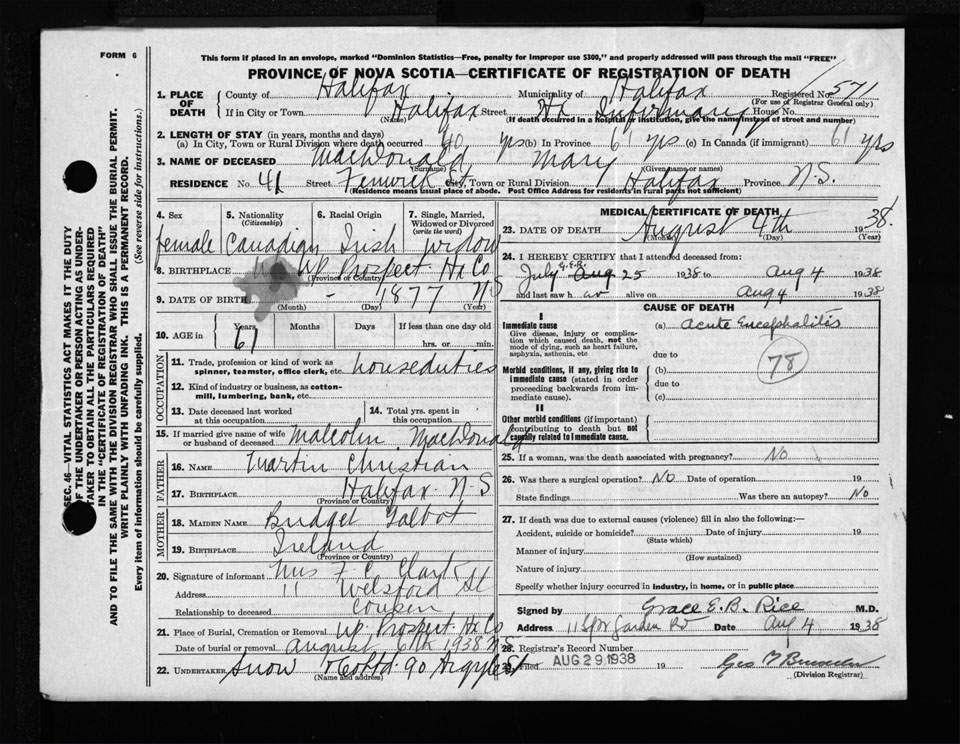 FORM 6
This form if placed in an envelope, marked "Dominion Statistics—Free, penalty for improper use $300," and properly addressed will pass through the mail "FREE"
PROVINCE OF NOVA SCOTIA—CERTIFICATE OF REGISTRATION OF DEATH
SEC. 46—VITAL STATISTICS ACT MAKES IT THE DUTY
OF THE UNDERTAKER OR PERSON ACTING AS UNDER-
TAKER TO OBTAIN ALL THE PARTICULARS REQUIRED
IN THE "CERTIFICATE OF REGISTRATION OF DEATH"
AND TO FILE THE SAME WITH THE DIVISION REGISTRAR WHO SHALL ISSUE THE BURIAL PERMIT.
WRITE PLAINLY WITH UNFADING INK. THIS IS A PERMANENT RECORD.
Every item of information should be carefully supplied. (See reverse side for instructions.)
1. PLACE OF DEATH County of Halifax Municipality of Halifax Registered No. 571
(For use of Registrar General only)
If in City or Town Halifax Street Hx Infirmary House No.
(Name) (If death occurred in a hospital or institution, give the name instead of street and number)
2. LENGTH OF STAY (in years, months and days)
(a) In City, Town or Rural Division where death occurred 40 yrs (b) In Province 61 yrs (c) In Canada (if immigrant) 61 yrs
3. NAME OF DECEASED MacDonald, Mary
(Surname) (Given name or names)
RESIDENCE No. 41 Street Fenwick St City, Town or Rural Division Halifax Province N.S.
(Residence means usual place of abode. Post Office Address for residents in rural parts not sufficient)
4. Sex 5. Nationality (Citizenship) 6. Racial Origin 7. Single, Married, Widowed or Divorced (write the word)
female Canadian Irish widow
8. BIRTHPLACE Up Prospect Hx Co
(Province or Country) N S
9. DATE OF BIRTH - 1877
(Month) (Day) (Year)
10. AGE in Years Months Days If less than one day old
61 hrs. or min.
OCCUPATION
11. Trade, profession or kind of work as spinner, teamster, office clerk, etc. houseduties
12. Kind of industry or business, as cotton-mill, lumbering, bank, etc.
13. Date deceased last worked at this occupation
14. Total yrs. spent in this occupation
15. If married give name of wife or husband of deceased Malcolm MacDonald
FATHER
16. NAME Martin Christian
17. BIRTHPLACE Halifax N-S
(Province or Country)
MOTHER
18. MAIDEN NAME Bridget Talbot
19. BIRTHPLACE Ireland
(Province or Country)
20. Signature of informant Mrs F. C. Clark
Address 11 Welsford St
Relationship to deceased cousin
21. Place of Burial, Cremation or Removal Up Prospect Hx Co
Date of burial or removal august 6th 1938 N S
22. UNDERTAKER Snow & Co Ltd. 90 Argyle St
(Name and Address)
MEDICAL CERTIFICATE OF DEATH
23. DATE OF DEATH August 4th 1938.
(Month) (Day) (Year)
24. I HEREBY CERTIFY that I attended deceased from:
G.E.R.
July Aug 25 1938 to Aug 4 1938
and last saw her alive on Aug 4 1938
CAUSE OF DEATH
I
Immediate cause
Give disease, injury or complication which caused death, not the mode of dying, such as heart failure, asphyxia, asthenia, etc
(a) Acute Encephalitis
due to
78
Morbid conditions, if any, giving rise to immediate cause (stated in order proceeding backwards from immediate cause).
(b)
due to
(c)
II
Other morbid conditions (if important) contributing to death but not causally related to immediate cause.
25. If a woman, was the death associated with pregnancy? No
26. Was there a surgical operation? No Date of operation 19
State findings Was there an autopsy? No
27. If death was due to external causes (violence) fill in also the following:—
Accident, suicide or homicide? Date of injury 19
(State which)
Manner of injury
(How sustained)
Nature of injury
Specify whether injury occurred in industry, in home, or in public place
Signed by Grace E. B. Rice M.D.
Address 11 Spr Garden Rd Date Aug 4 1938
28. Registrar's Record Number
29. Filed AUG 29 1938 19
(Division Registrar)